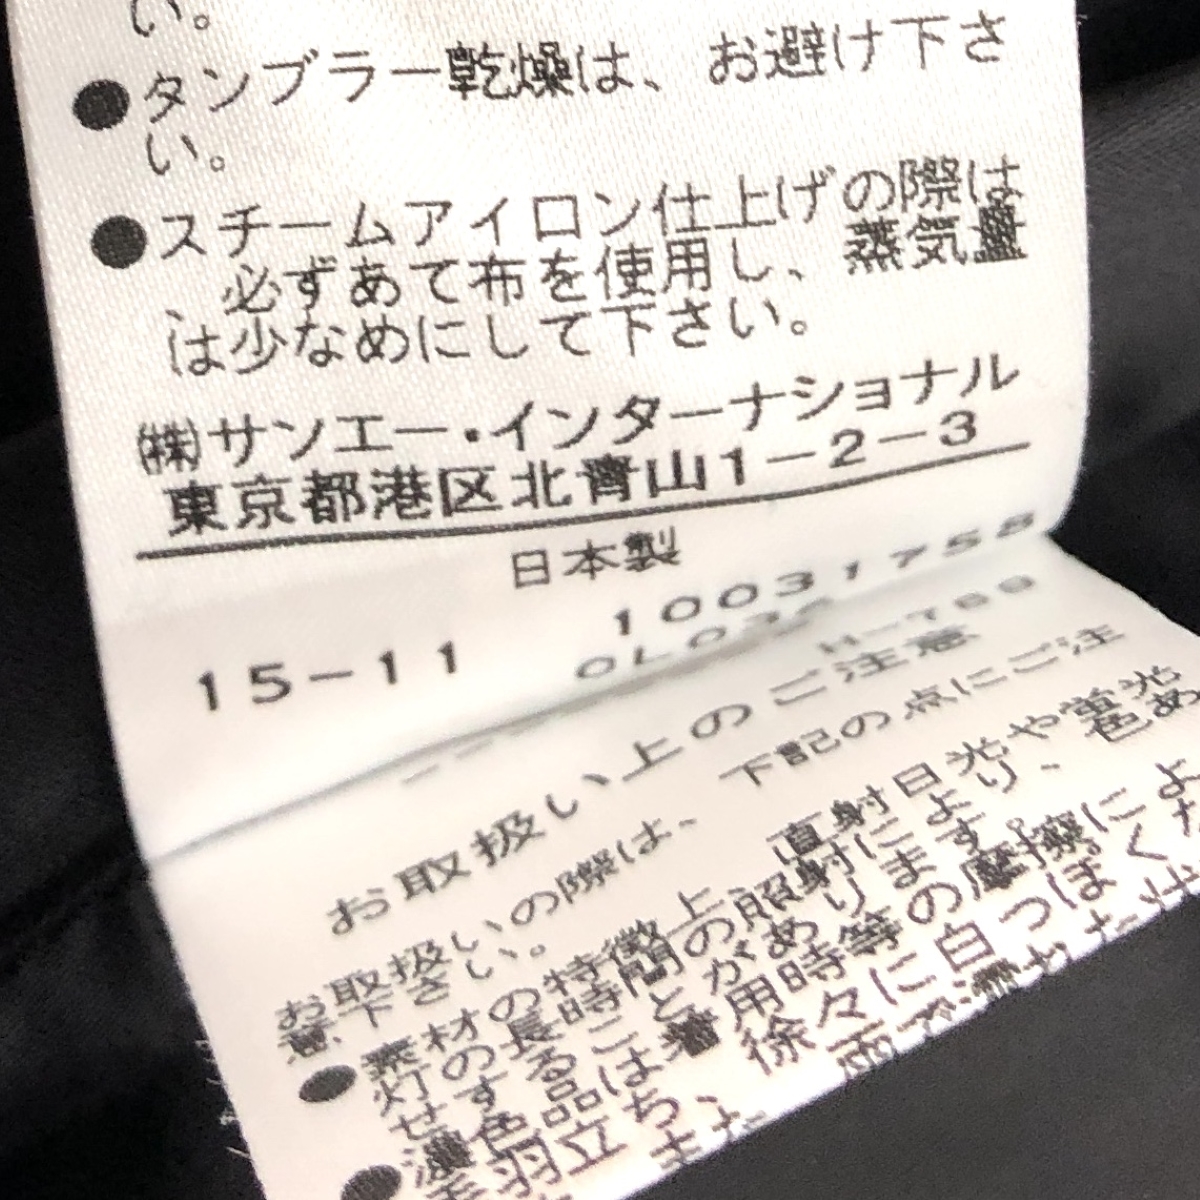 い。
●タンブラー乾燥は、お避け下さ
い。
●スチームアイロン仕上げの際は
、必ずあて布を使用し、蒸気量
は少なめにして下さい。
㈱サンエー・インターナショナル
東京都港区北青山1-2-3
日本製
15-11 10031758
お取扱い上のご注意
お取扱いの際は、下記の点にご注
意下さい。
●素材の特徴上、直射日光や蛍光
灯の長時間の照射により、色あ
せすることがあります。
●濃色品は着用時等の摩擦によ
毛羽立ち、徐々に白っぽく